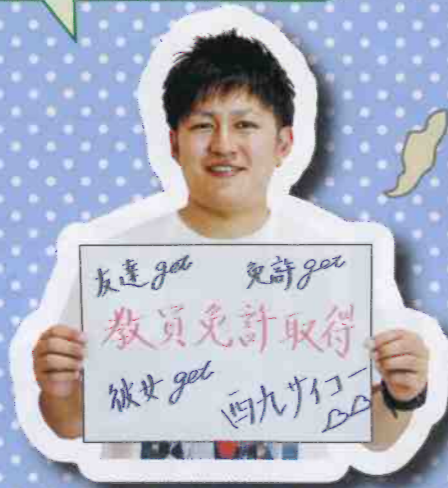 友達get 免許get
教員免許取得
彼女get 西九サイコー